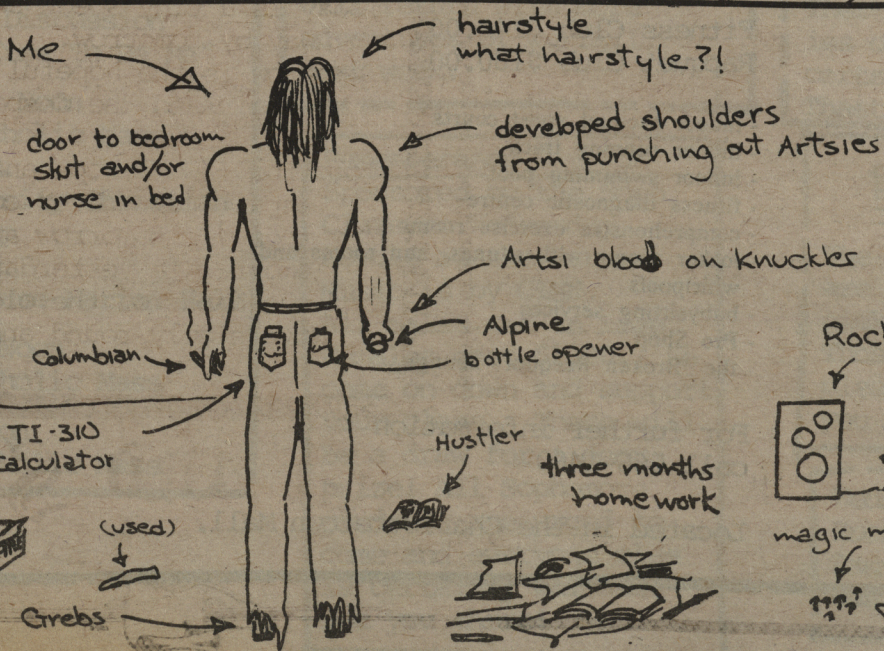 Me
hairstyle
what hairstyle?!
door to bedroom
slut and/or
nurse in bed
developed shoulders
from punching out Artsies
Artsi blood on Knuckles
Columbian
Alpine
bottle opener
TI-310
Calculator
Hustler
three months
homework
(used)
Grebs
Rock
magic m